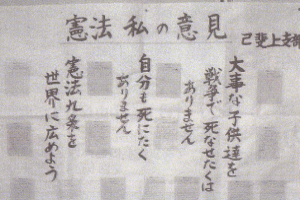 憲法 私の意見
己斐上支部
大事な子供達を
戦争で死なせたくは
ありません
自分も死にたく
ありません
憲法九条を
世界に広めよう